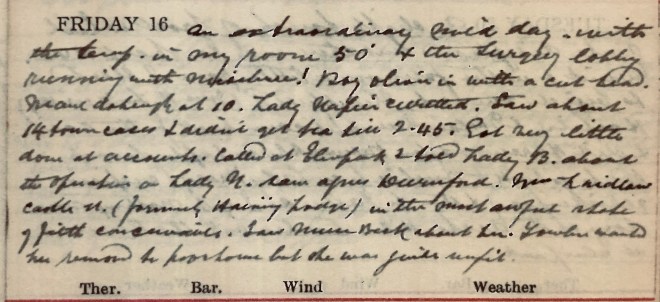 FRIDAY 16 An extraordinary mild day. with
the temp. in my room 50° & the Surgery lobby
running with moisture! Boy in with a cut head.
at 10. Lady Napier Saw about
14 town cases & didn't get tea till 2.45. Got very little
done at accounts. Called at Elmpark & told Lady B. about
the operation on Lady N. saw Agnes Durnford. Mrs Laidlaw
Castle St. (formerly Haining Lodge) in the most awful state
of filth conceivable. Saw about her. wanted
her removed to poorhouse but she was quite unfit.
Ther. Bar. Wind Weather